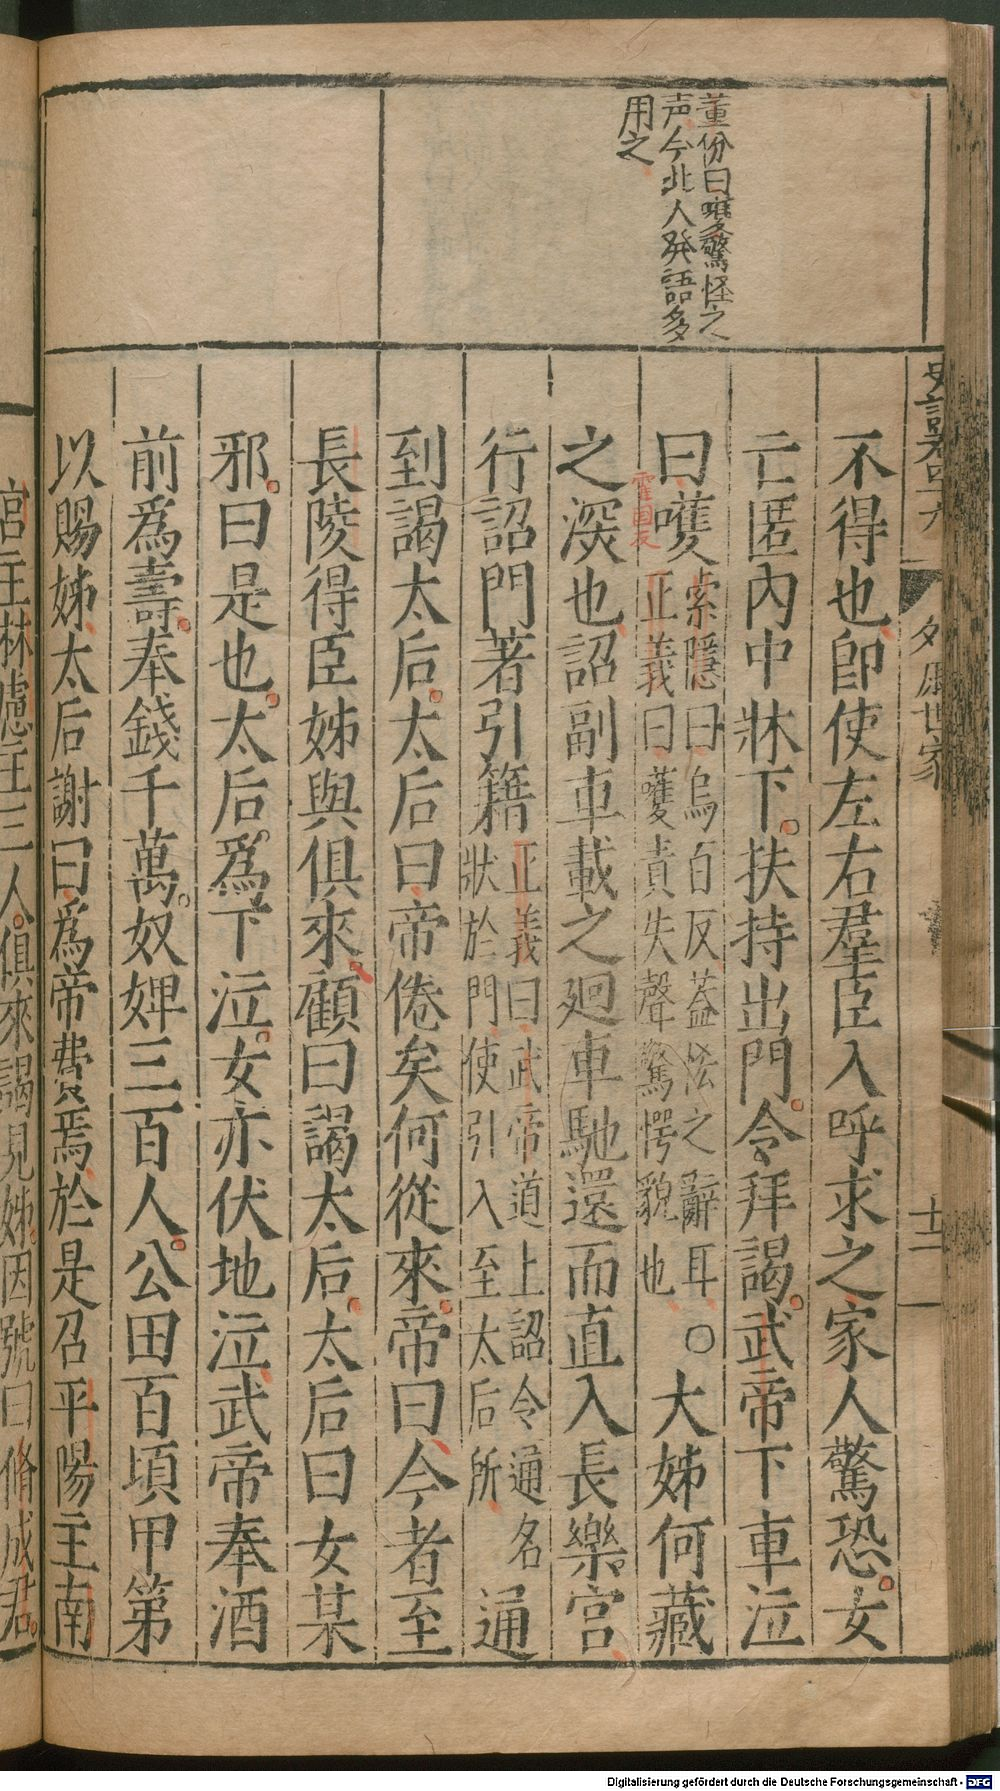 董份曰嚄驚怪之
声今北人発語多
用之
史記卷四十九
外戚世家
十二
不得也卽使左右羣臣入呼求之家人驚恐女
亡匿內中牀下扶持出門令拜謁武帝下車泣
曰嚄索隱曰烏百反蓋恠之辭耳○大姊何藏
正義曰嚄責失聲驚愕貌也
霍国反
之深也詔副車載之廻車馳還而直入長樂宮
行詔門著引籍正義曰武帝道上詔令通名通
狀於門使引入至太后所
到謁太后太后曰帝倦矣何從來帝曰今者至
長陵得臣姊與俱來顧曰謁太后太后曰女某
邪曰是也太后爲下泣女亦伏地泣武帝奉酒
前爲壽奉錢千萬奴婢三百人公田百頃甲第
以賜姊太后謝曰爲帝費焉於是召平陽主南
宮主林慮主三人俱來謁見姊因號曰脩成君
Digitalisierung gefördert durch die Deutsche Forschungsgemeinschaft - DFG